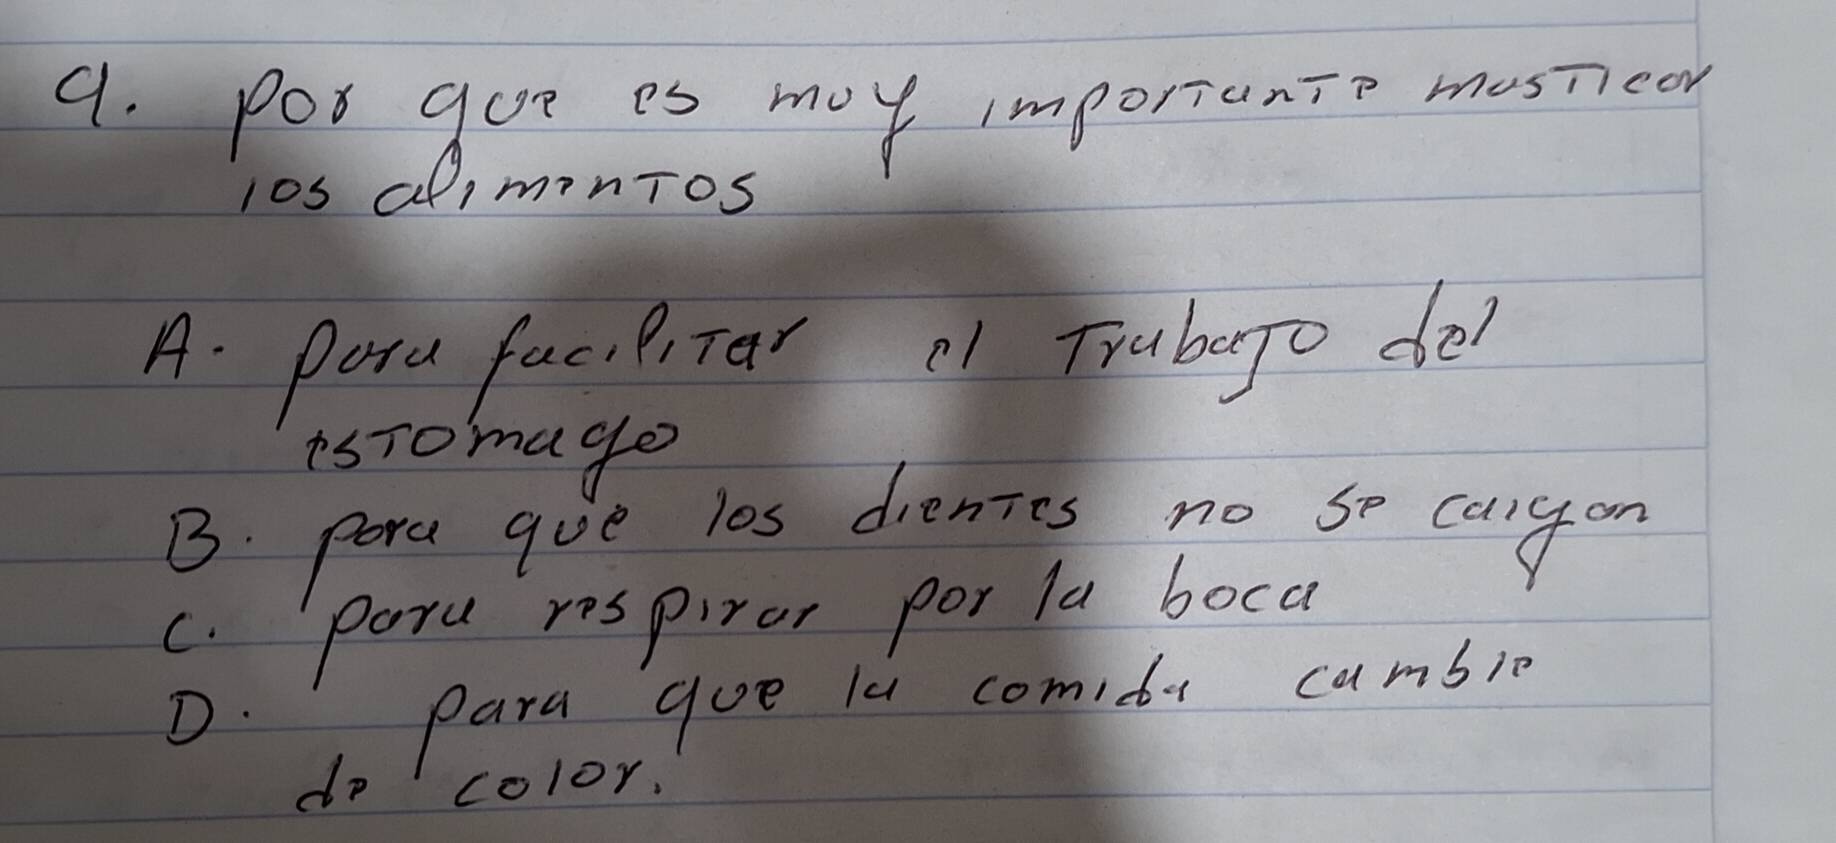 9. por que es muy importante masticar
los alimentos
A. para facilitar el trabajo del
estomago
B. para que los dientes no se caigan
C. para respirar por la boca
D. para que la comida cambie
de color.